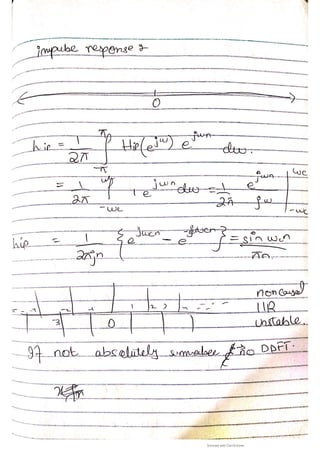 impulse response :
0
h lp = 1/2π ∫_{-π}^{π} Hlp(e^{jω}) e^{jωn} dω.
= 1/2π ∫_{-ωc}^{ωc} 1 e^{jωn} dω = 1/2π e^{jωn}/jω |_{-ωc}^{ωc}
hlp = 1/2πjn { e^{jωcn} - e^{-jωcn} } = sin ωcn / πn.
non causal
1 2 IIR
-3 0 unstable.
If not absolutely summable no DDFT.
Scanned with CamScanner